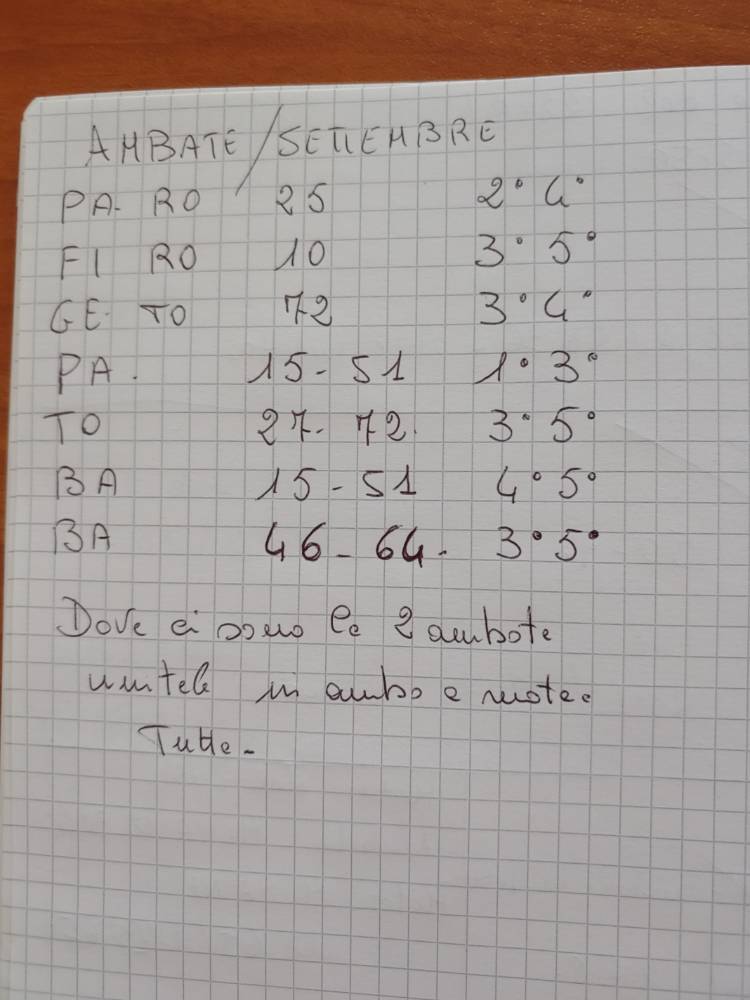 AMBATE / SETTEMBRE
PA. RO 25 2° 4°
FI RO 10 3° 5°
GE. TO 72 3° 4°
PA. 15 - 51 1° 3°
TO 27 - 72. 3° 5°
BA 15 - 51 4° 5°
BA 46 - 64. 3° 5°
Dove ci sono le 2 ambate
unitele in ambo e ruote.
Tutte -